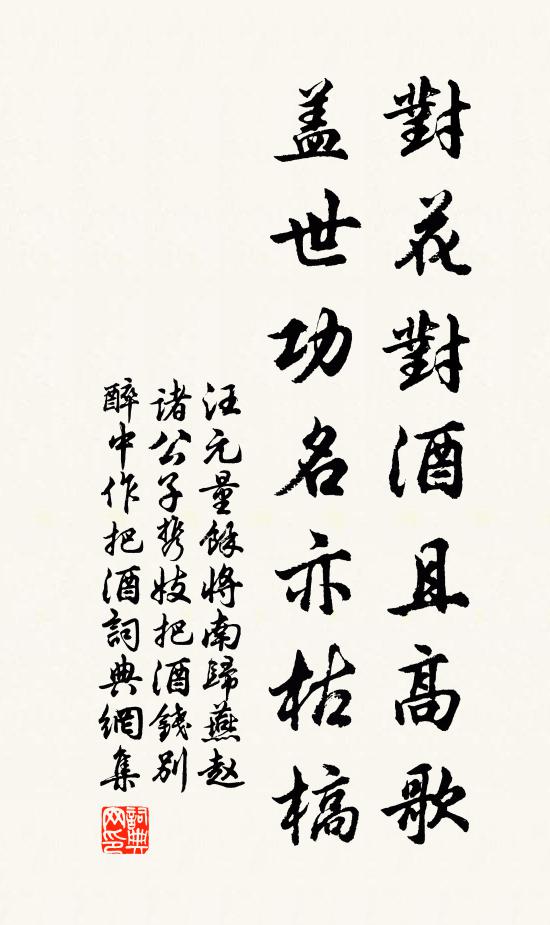 對花對酒且高歌
盖世功名亦枯槁
汪元量餘將南歸燕赵
諸公子携妓把酒餞别
醉中作把酒詞典網集
詞典网印